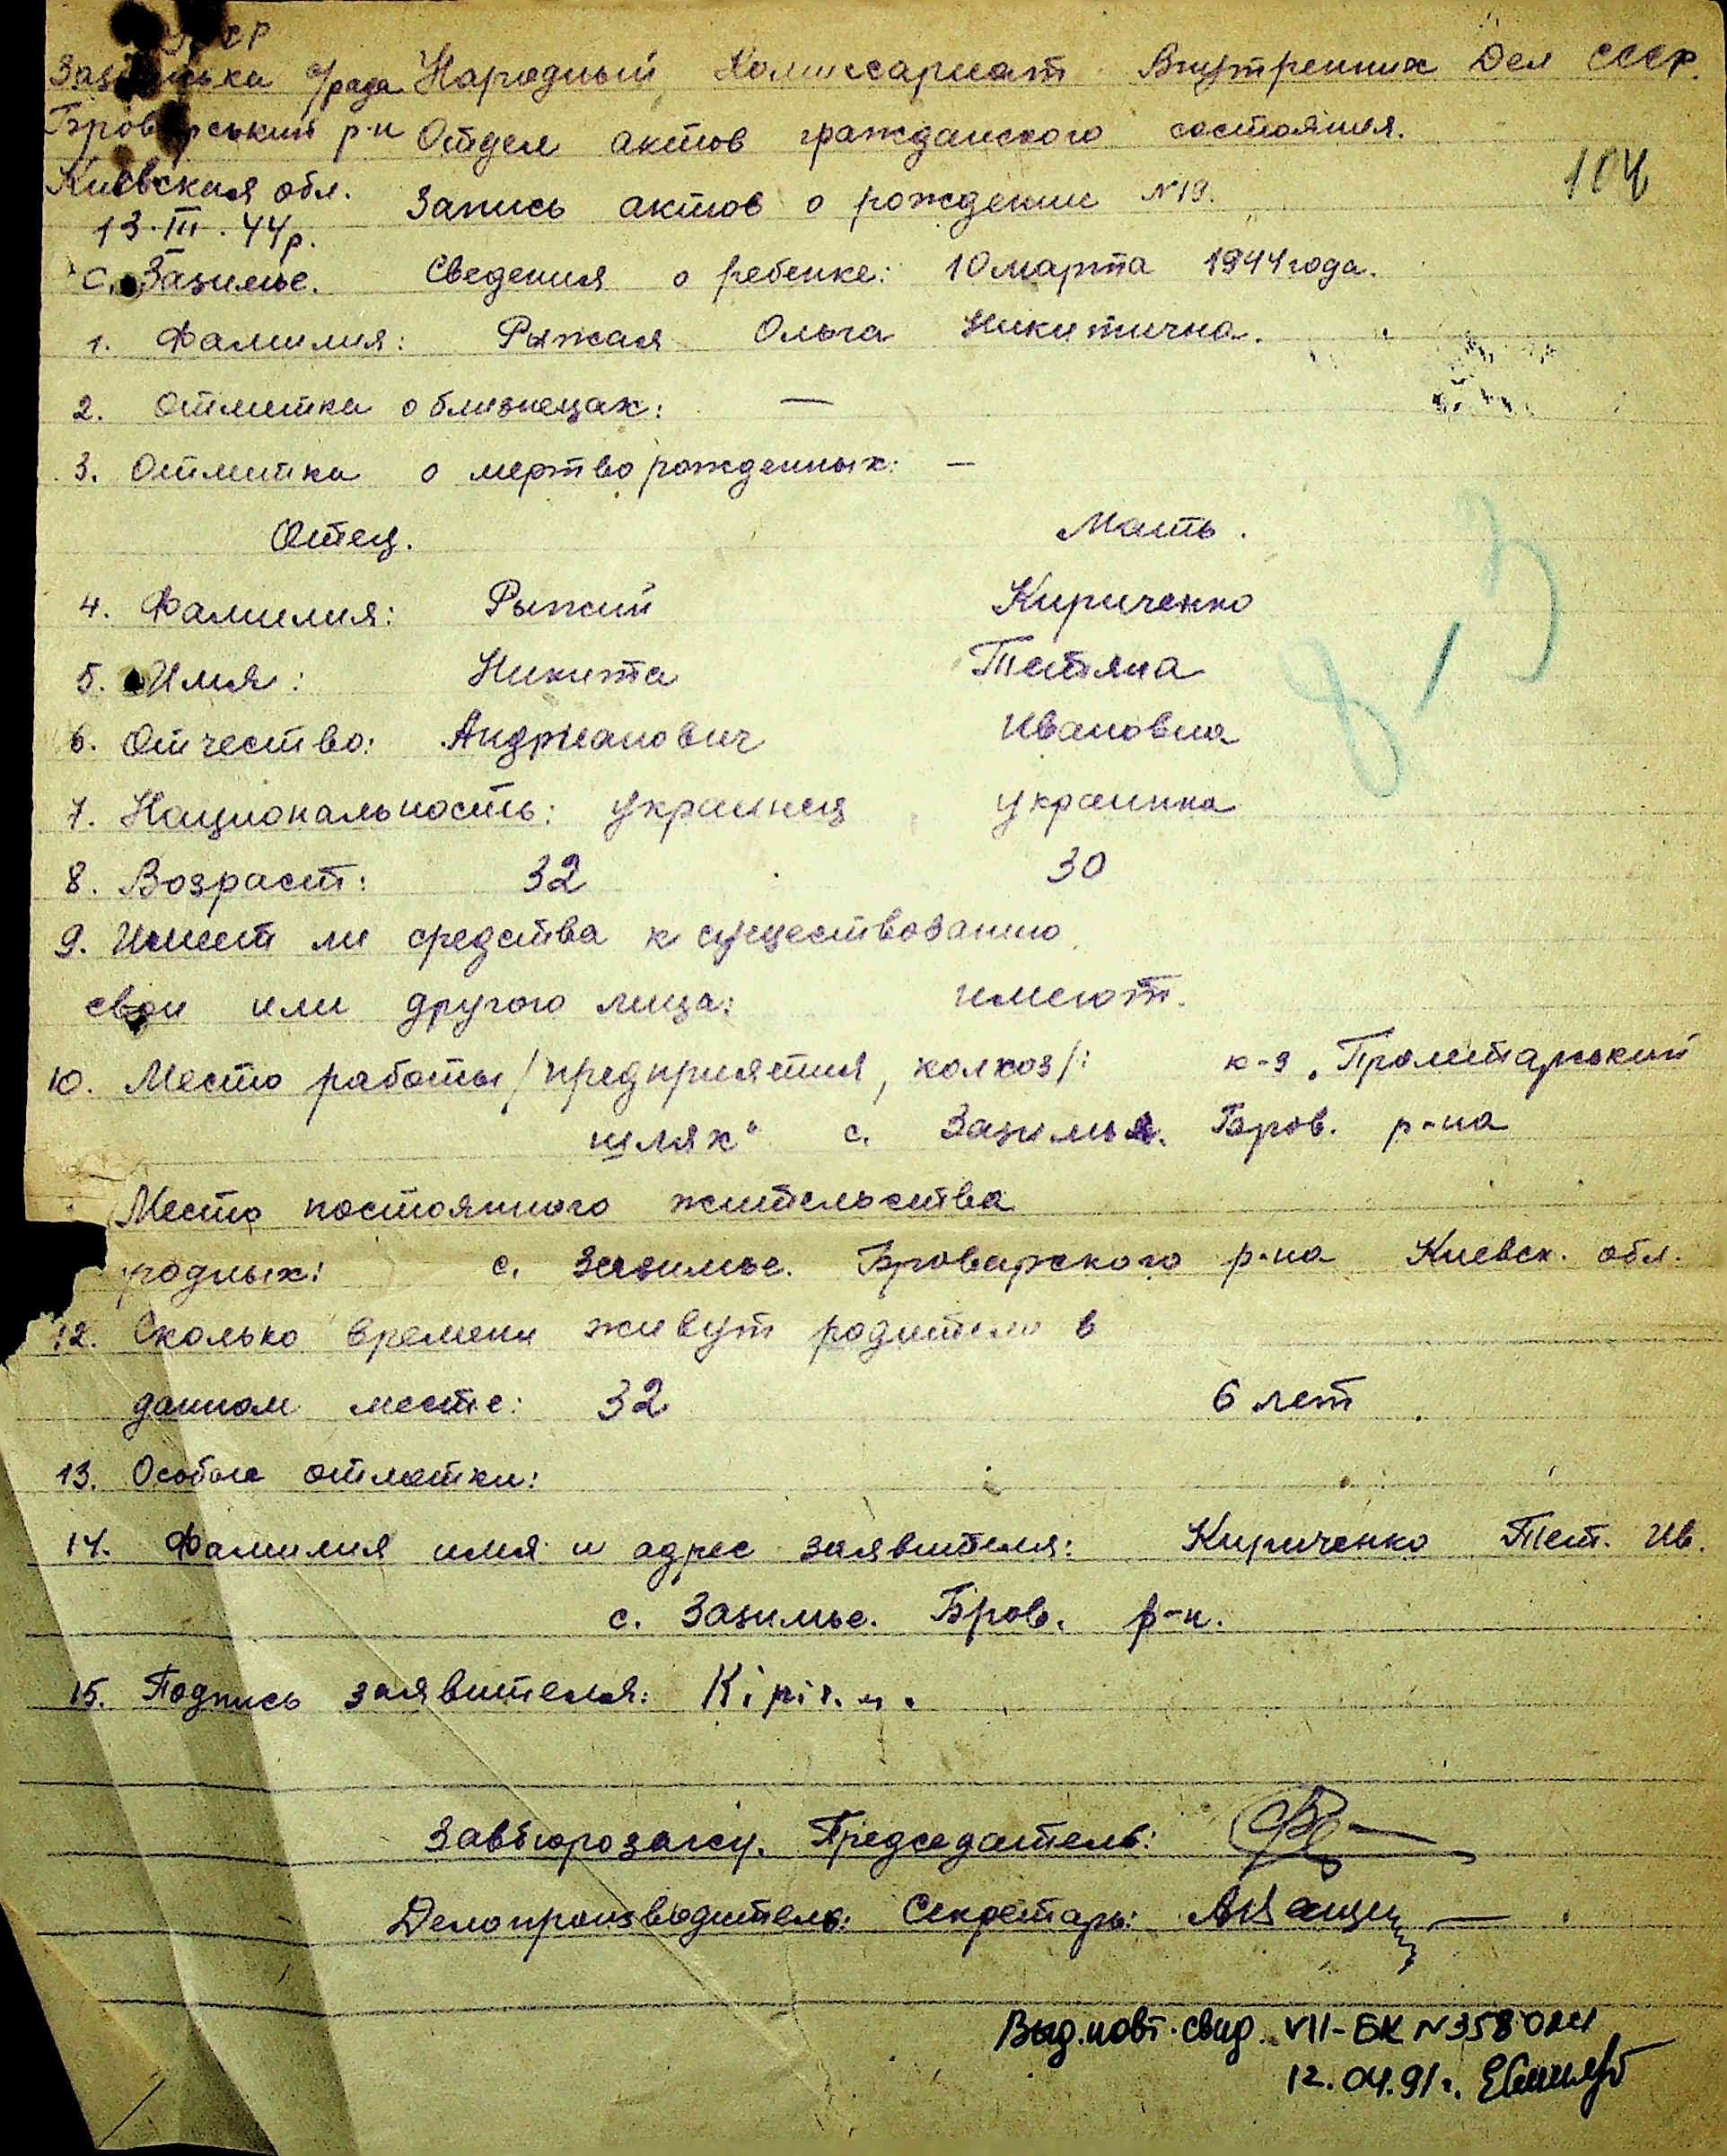 Народный Комиссариат Внутренних Дел СССР.
с/рада
Броварський р-н Отдел актов гражданского состояния.
Киевская обл. Запись актов о рождении №19.
104
13·III·44р.
с. Зазимье. Сведения о ребенке: 10 марта 1944 года.
1. Фамилия: Рыжая Ольга Никитична.
2. Отметка о близнецах: —
3. Отметка о мертво рожденных: —
Отец. Мать.
4. Фамилия: Рыжий Кириченко
5. Имя: Никита Тетяна
6. Отчество: Андрианович Ивановна
7. Национальность: украинец украинка
8. Возраст: 32 30
9. Имеет ли средства к существованию
свои или другого лица: имеют.
10. Место работы /предприятия, колхоз/: к-з „Пролетарський
шлях“ с. Зазимья. Бров. р-на
Место постоянного жительства
родных: с. Зазимье. Броварского р-на Киевск. обл.
12. Сколько времени живут родители в
данном месте: 32 6 лет
13. Особые отметки:
14. Фамилия имя и адрес заявителя: Кириченко Тет. Ив.
с. Зазимье. Бров. р-н.
15. Подпись заявителя:
Завбюрозагсу. Председатель:
Делопроизводитель: Секретарь:
Выд. повт. свид. VII-БК N 358024
12.04.91г.